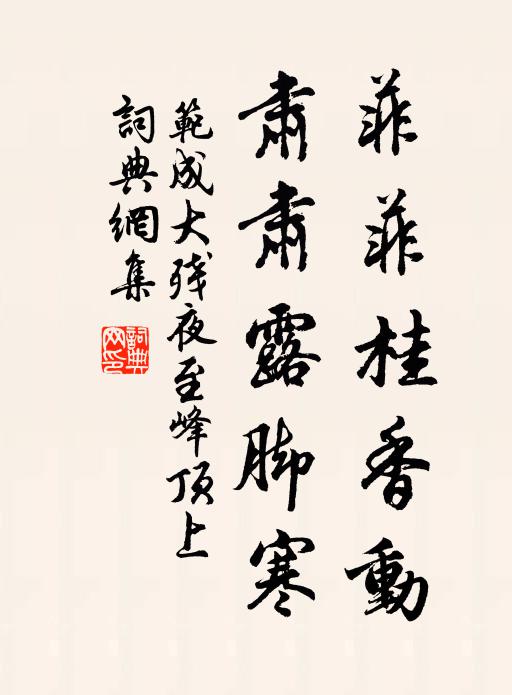 菲菲桂香動
肅肅露脚寒
範成大残夜至峰頂上
詞典網集
詞典網印